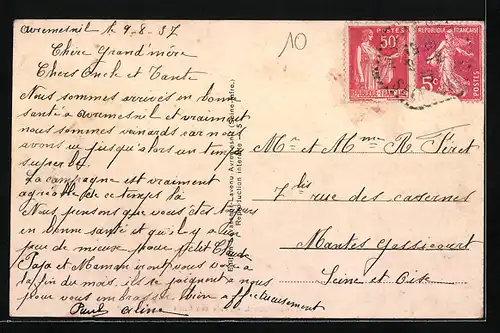 Avremesnil le 9-8-37
10
Chère Grand'mère
Chers Oncle et Tante
Nous sommes arrivés en bonne
santé à Avremesnil et vraiment
nous sommes veinards car nous
avons eu jusqu'alors un temps
superbe.
La campagne est vraiment
agréable par ce temps là
Nous pensons que vous êtes toujours
en bonne santé et qu'il y a un
peu de mieux pour petit Claude
Papa et Maman iront vous voir à
la fin du mois, ils se joignent à nous
pour vous embrasser bien affectueusement
Paul Aline
POSTES
50c
REPUBLIQUE FRANÇAISE
REPUBLIQUE FRANÇAISE
5c
POSTES
Reproduction interdite
Mr et Mme R. Féret
7 bis rue des casernes
Mantes Gassicourt
Seine et Oise